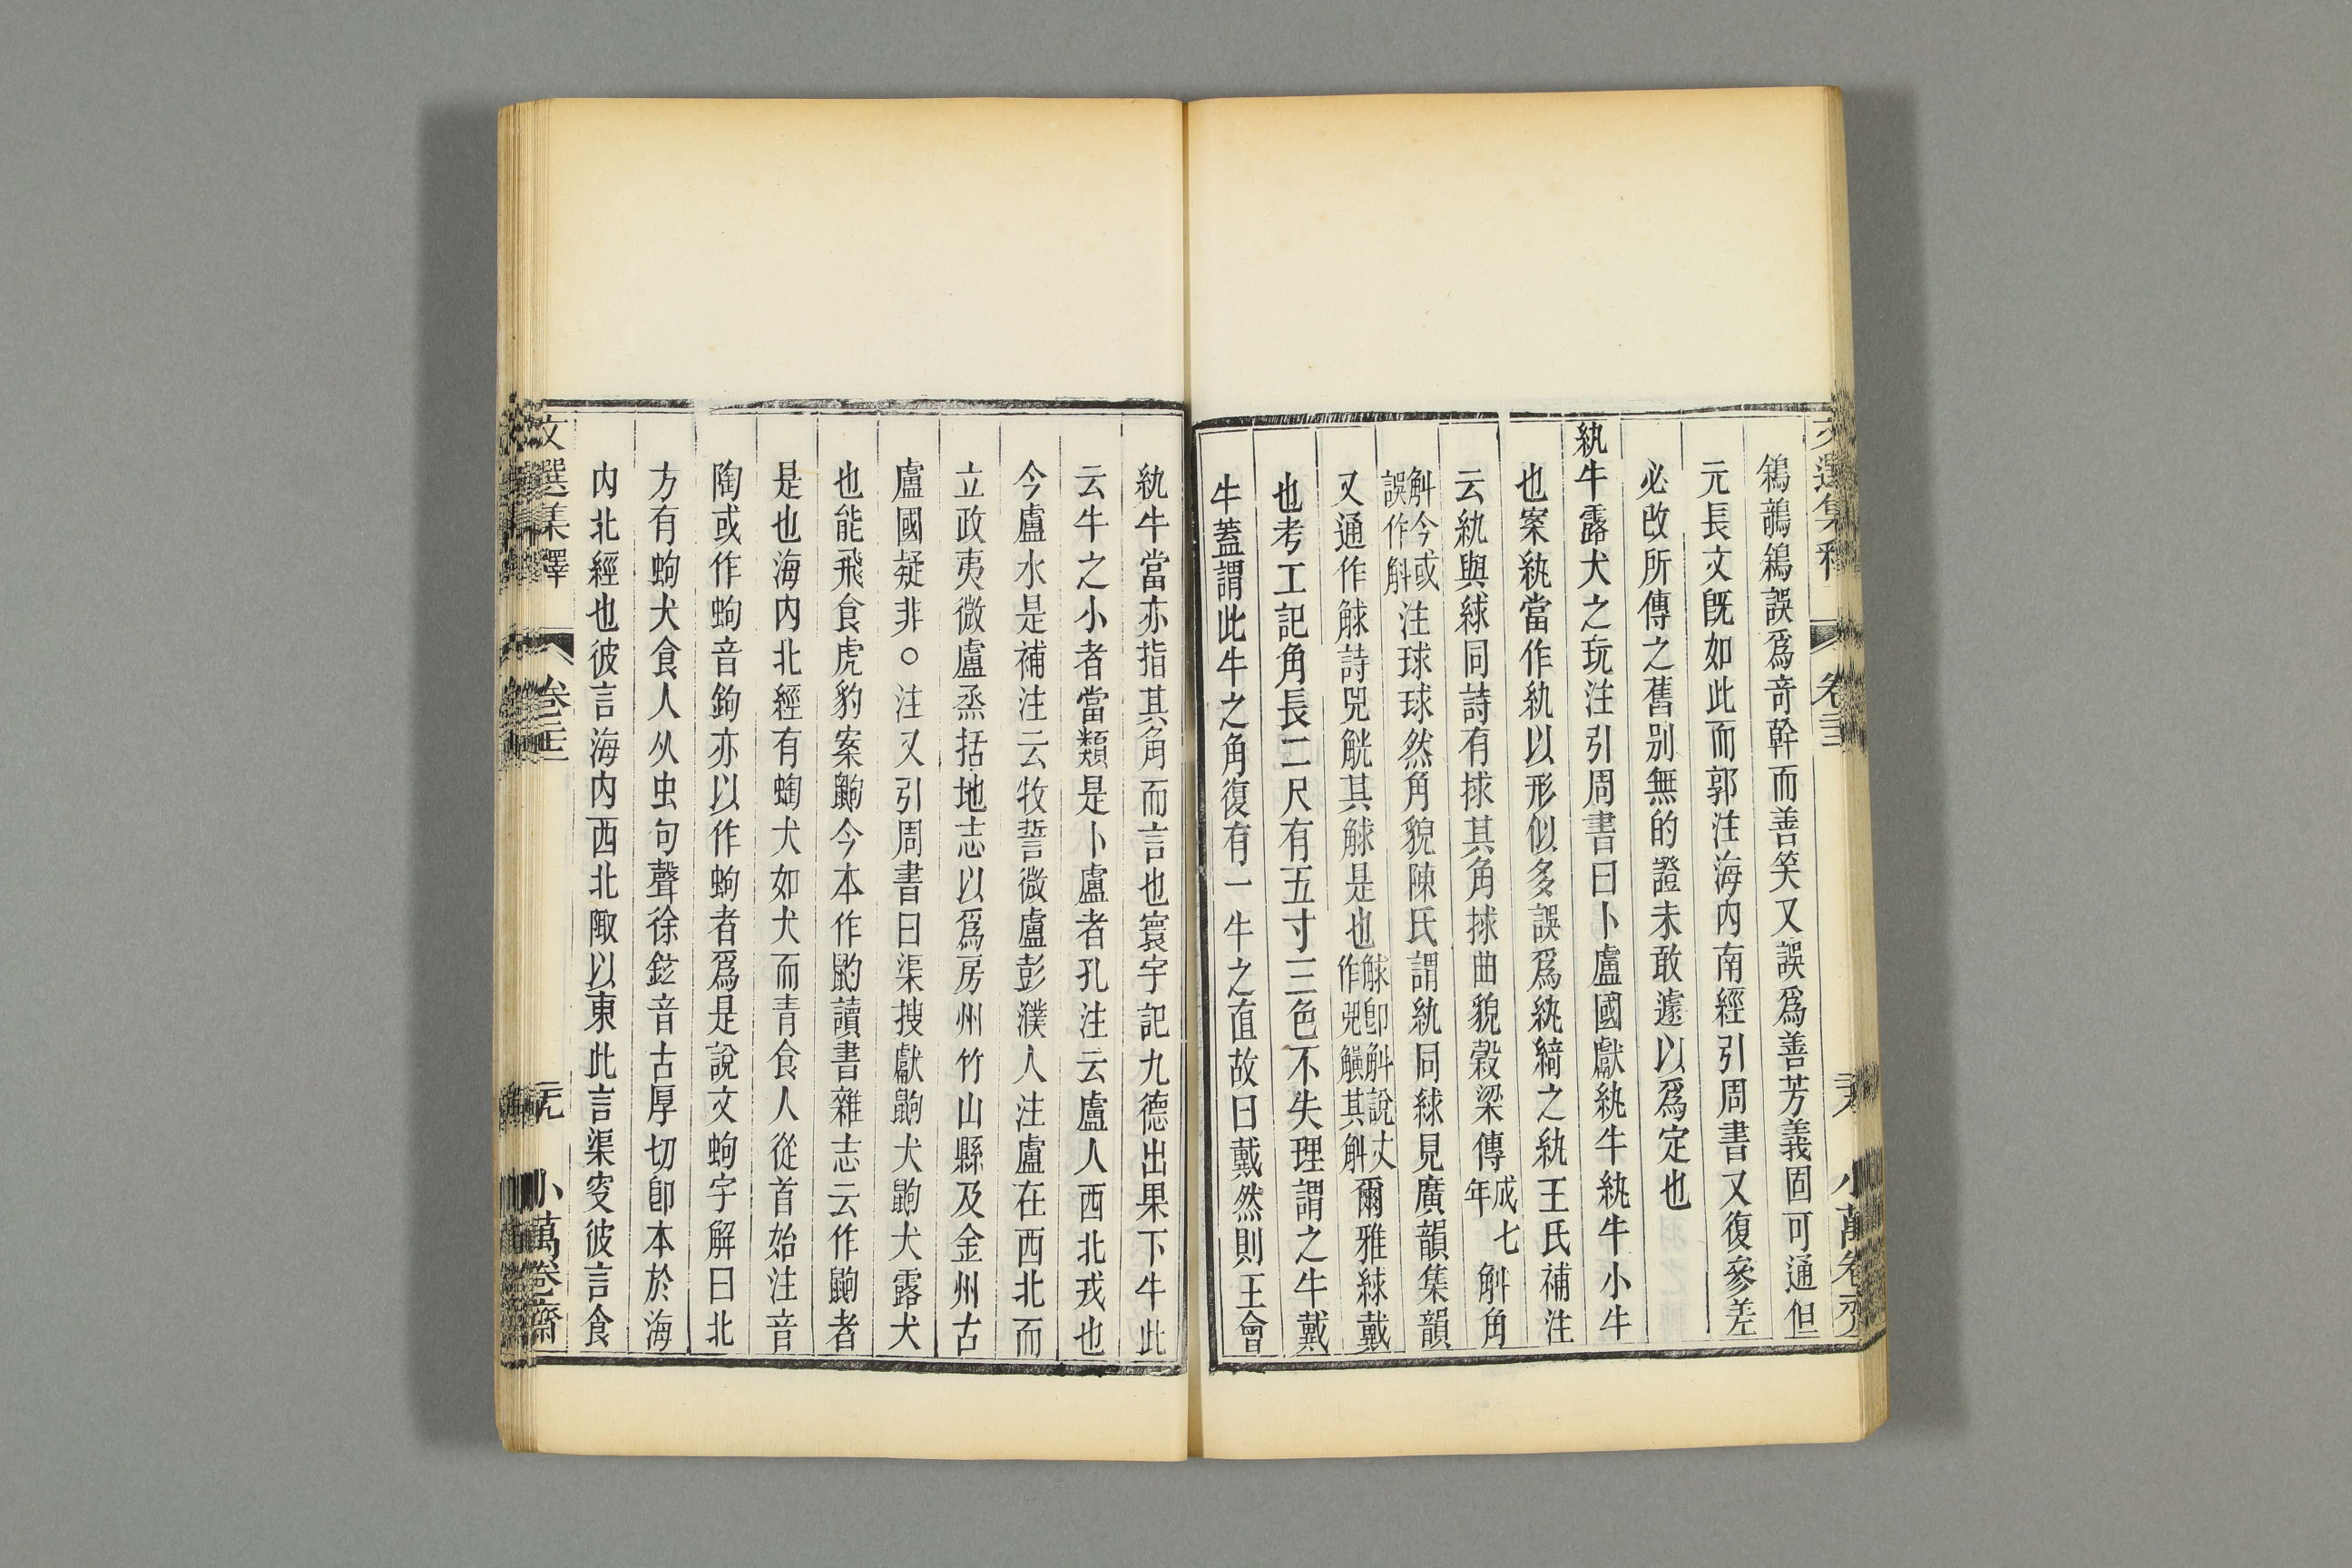 鴮鶘鴮誤爲竒幹而善笑又誤爲善芳義固可通但
元長文既如此而郭注海内南經引周書又復參差
必改所傳之舊别無的證未敢遽以爲定也
紈牛露犬之玩注引周書曰卜盧國獻紈牛紈牛小牛
也案紈當作紈以形似多誤爲紈綺之紈王氏補注
云紈與絿同詩有捄其角捄曲貌穀梁傳成七年斛角
斛今或誤作斛注球球然角貌陳氏謂紈同絿見廣韻集韻
又通作觩詩兕觥其觩是也觩卽斛說文作兕觵其斛爾雅絿戴
也考工記角長二尺有五寸三色不失理謂之牛戴
牛蓋謂此牛之角復有一牛之直故曰戴然則王會
紈牛當亦指其角而言也寰宇記九德出果下牛此
云牛之小者當類是卜盧者孔注云盧人西北戎也
今盧水是補注云牧誓微盧彭濮人注盧在西北而
立政夷微盧烝括地志以爲房州竹山縣及金州古
盧國疑非○注又引周書曰渠搜獻鼩犬鼩犬露犬
也能飛食虎豹案鼩今本作鼢讀書雜志云作鼩者
是也海内北經有蜪犬如犬而青食人從首始注音
陶或作蚼音鉤亦以作蚼者爲是說文蚼字解曰北
方有蚼犬食人从虫句聲徐鉉音古厚切卽本於海
内北經也彼言海内西北陬以東此言渠叟彼言食
文選集釋 卷二十三 二十九 小萬卷齋